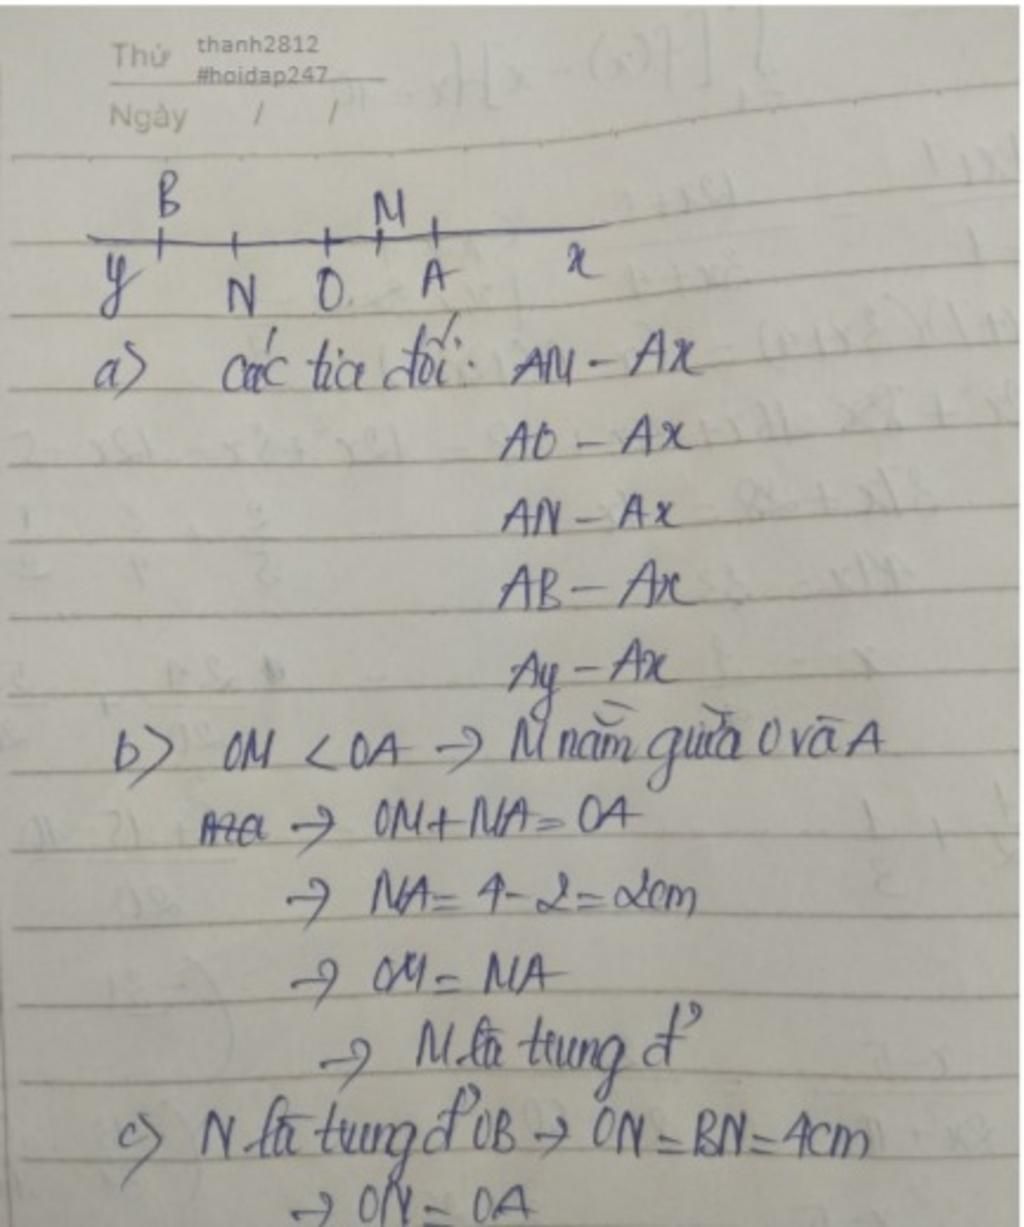 Thứ thanh2812
#hoidap247
Ngày / /
B M
y N O A x
a) các tia đối: AM - Ax
AO - Ax
AN - Ax
AB - Ax
Ay - Ax
b) OM < OA → M nằm giữa O và A
→ OM + MA = OA
→ MA = 4 - 2 = 2cm
→ OM = MA
→ M là trung đ'
c) N là trung đ' OB → ON = BN = 4cm
→ ON = OA